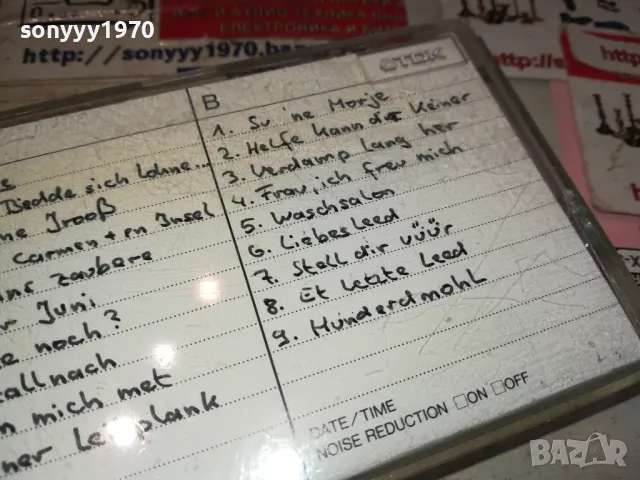 sonyyy1970
http://sonyyy1970.baz
ЕЛЕКТРОНИКА И БИ
http
TDK
B
1. Su 'ne Morje
2. Helfe kann dir keiner
3. Verdamp lang her
4. Frau, ich freu mich
5. Waschsalon
6. Liebesleed
7. Stell dir vüür
8. Et letzte Leed
9. Hunderdmohl
Bedde sich lohne...
ne Trooß
Carmen + en Insel
ns zaubere
Juni
noch?
allnach
mich met
ner Leitplank
DATE/TIME
NOISE REDUCTION □ON □OFF
BAZAR